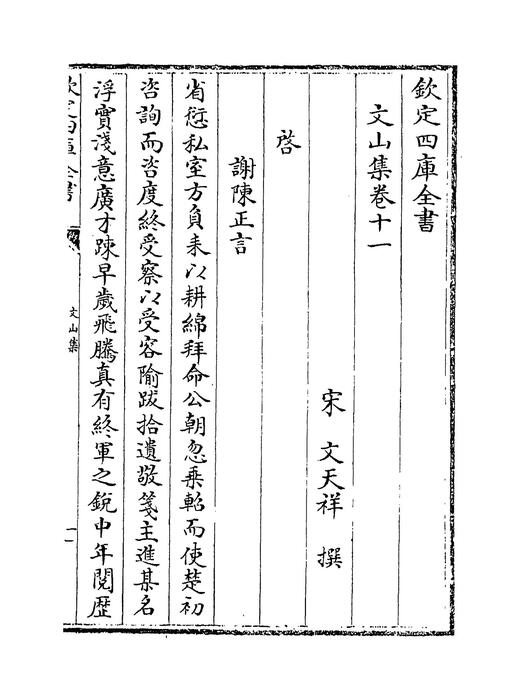 欽定四庫全書
文山集卷十一
宋 文天祥 撰
啓
謝陳正言
省愆私室方負耒以耕綿拜命公朝忽乗軺而使楚初
咨詢而咨度終受察以受容隃跋拾遺敬箋主進某名
浮實淺意廣才踈早歳飛騰真有終軍之銳中年閱歴
欽定四庫全書
文山集
一